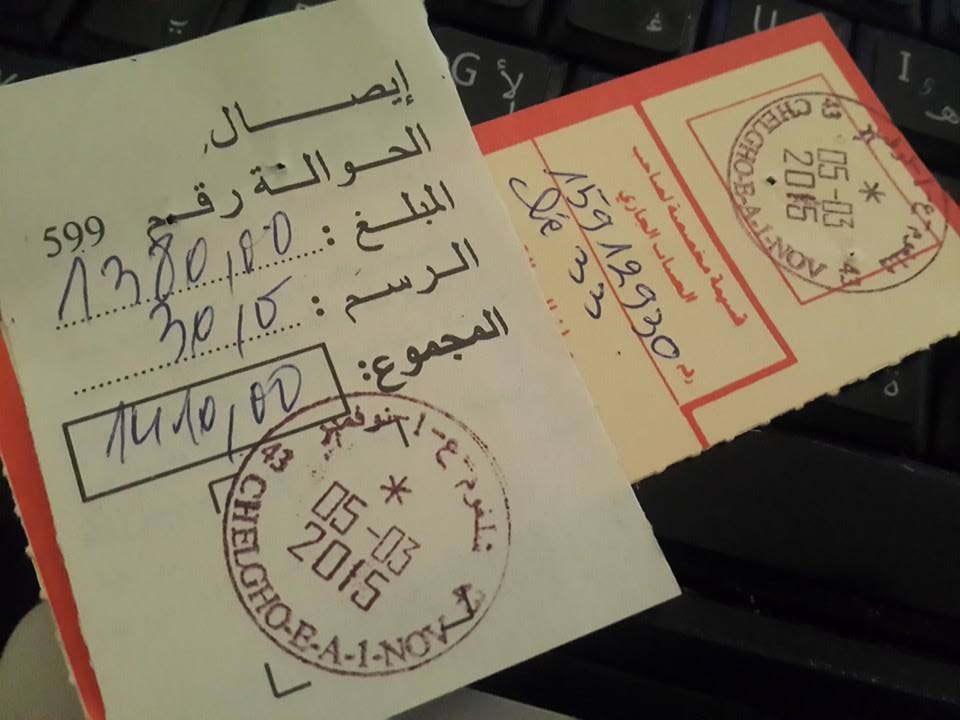 إيصال
الحوالة رقم 599
المبلغ : 1380,00
الرسم : 30,0
المجموع: 1410,00
شلغوم - ع - 1 نوفمبر
43
*
05-03
2015
43
CHELGHO-E-A-1-NOV
قسيمة مخصصة لصاحب
الحساب الجاري
رقم 15912930
Clé 33
شلغوم ع 1 نوفمبر
43
*
05-03
2015
43
CHELGHO-E-A-1-NOV
G لأ
U
I
ه